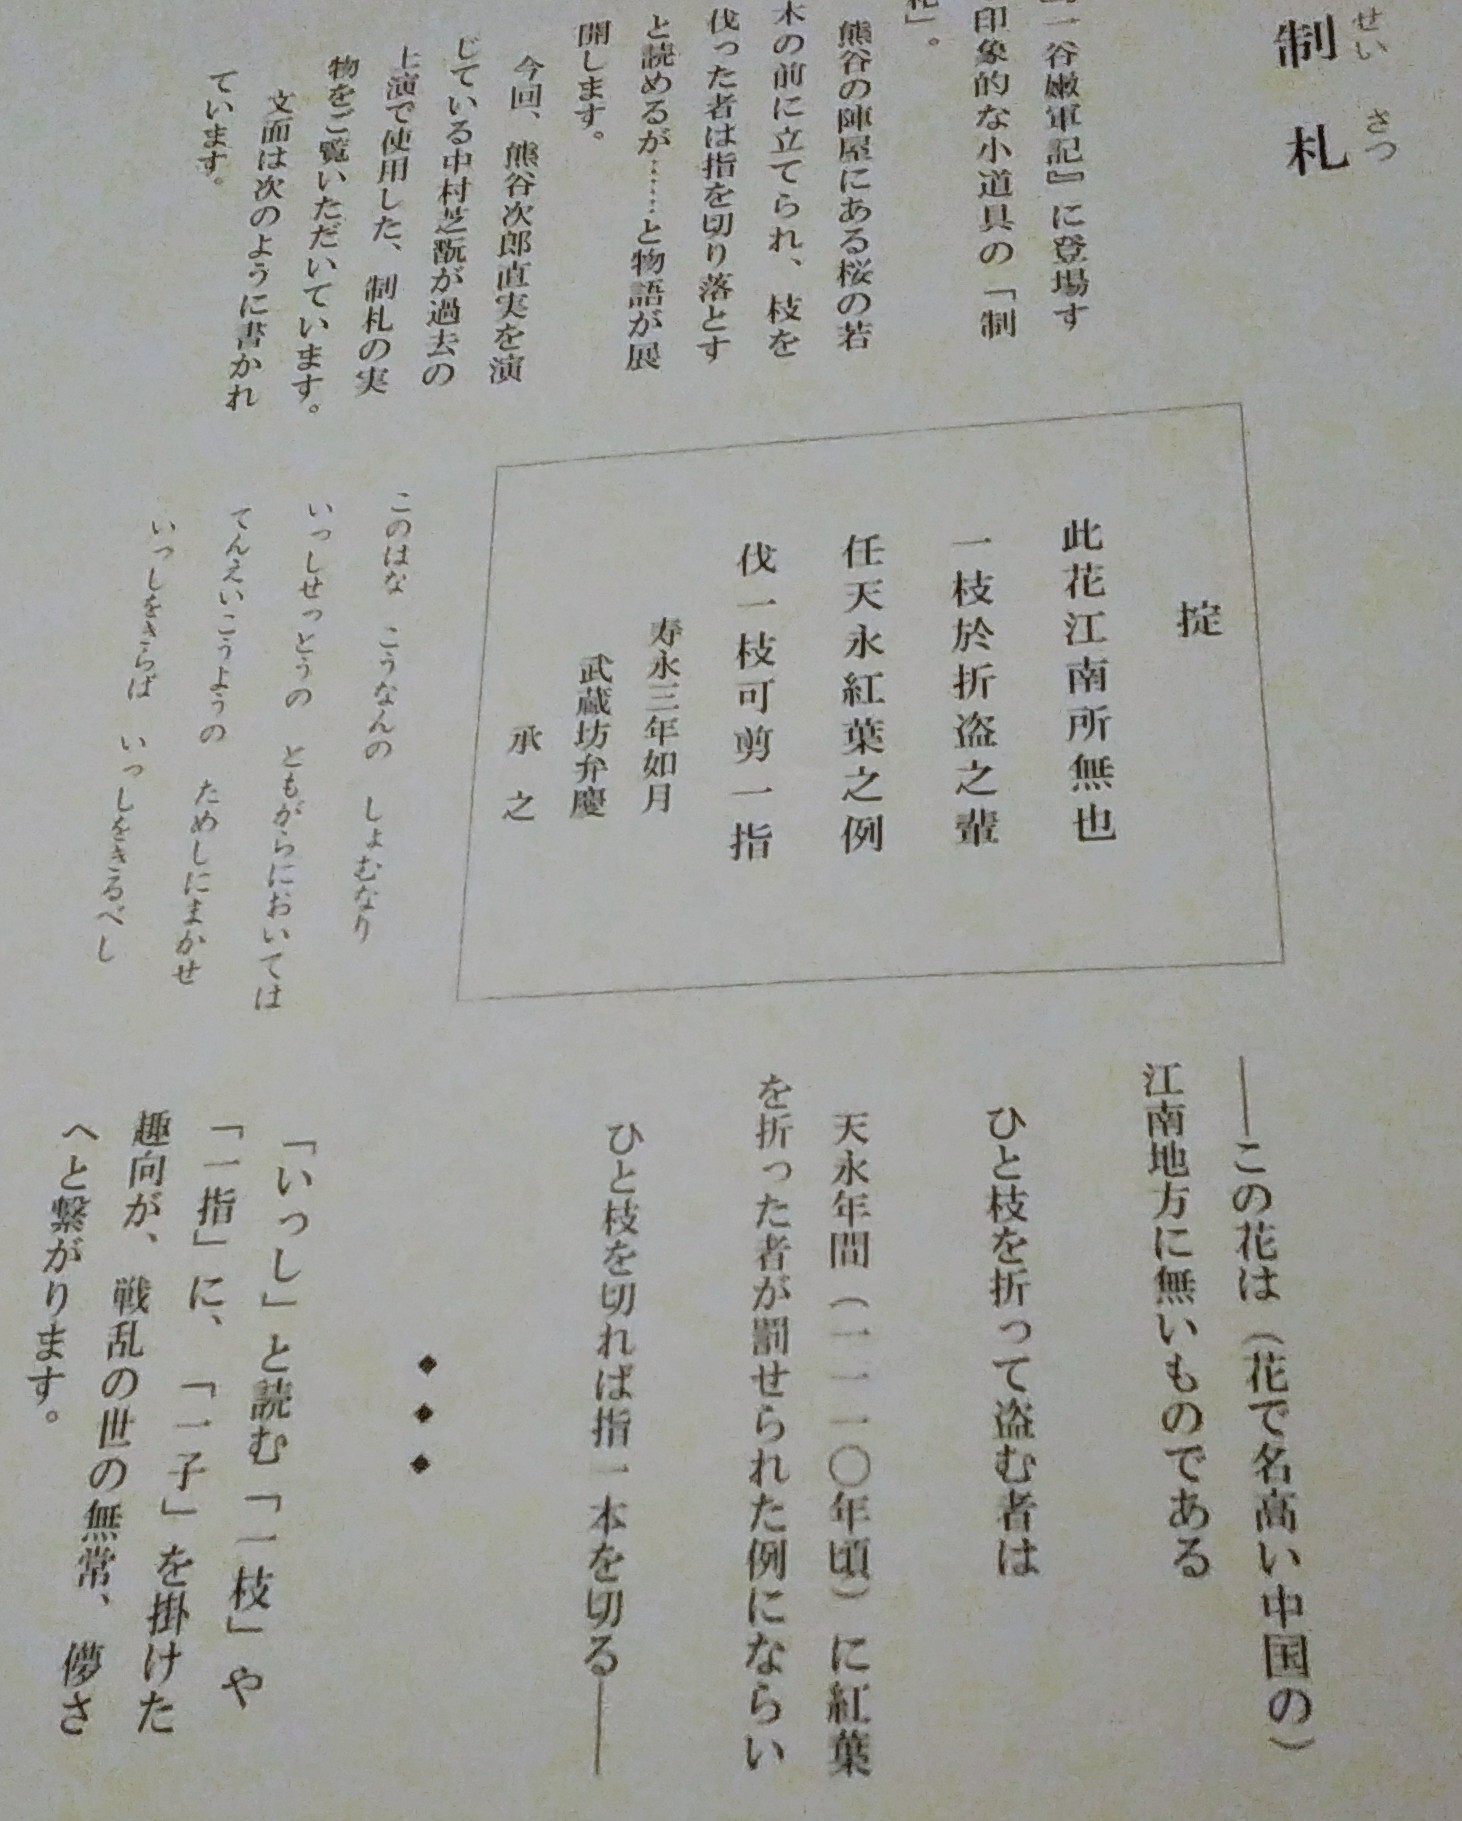 せいさつ
制札
一谷嫩軍記』に登場す
印象的な小道具の「制
札」。
熊谷の陣屋にある桜の若
木の前に立てられ、枝を
伐った者は指を切り落とす
と読めるが……と物語が展
開します。
今回、熊谷次郎直実を演
じている中村芝翫が過去の
上演で使用した、制札の実
物をご覧いただいています。
文面は次のように書かれ
ています。
掟
此花江南所無也
一枝於折盗之輩
任天永紅葉之例
伐一枝可剪一指
寿永三年如月
武蔵坊弁慶
承之
このはな こうなんの しょむなり
いっしせっとうの ともがらにおいては
てんえいこうようの ためしにまかせ
いっしをきらば いっしをきるべし
――この花は(花で名高い中国の)
江南地方に無いものである
ひと枝を折って盗む者は
天永年間(一一一〇年頃)に紅葉
を折った者が罰せられた例にならい
ひと枝を切れば指一本を切る――
◆◆◆
「いっし」と読む「一枝」や
「一指」に、「一子」を掛けた
趣向が、戦乱の世の無常、儚さ
へと繋がります。